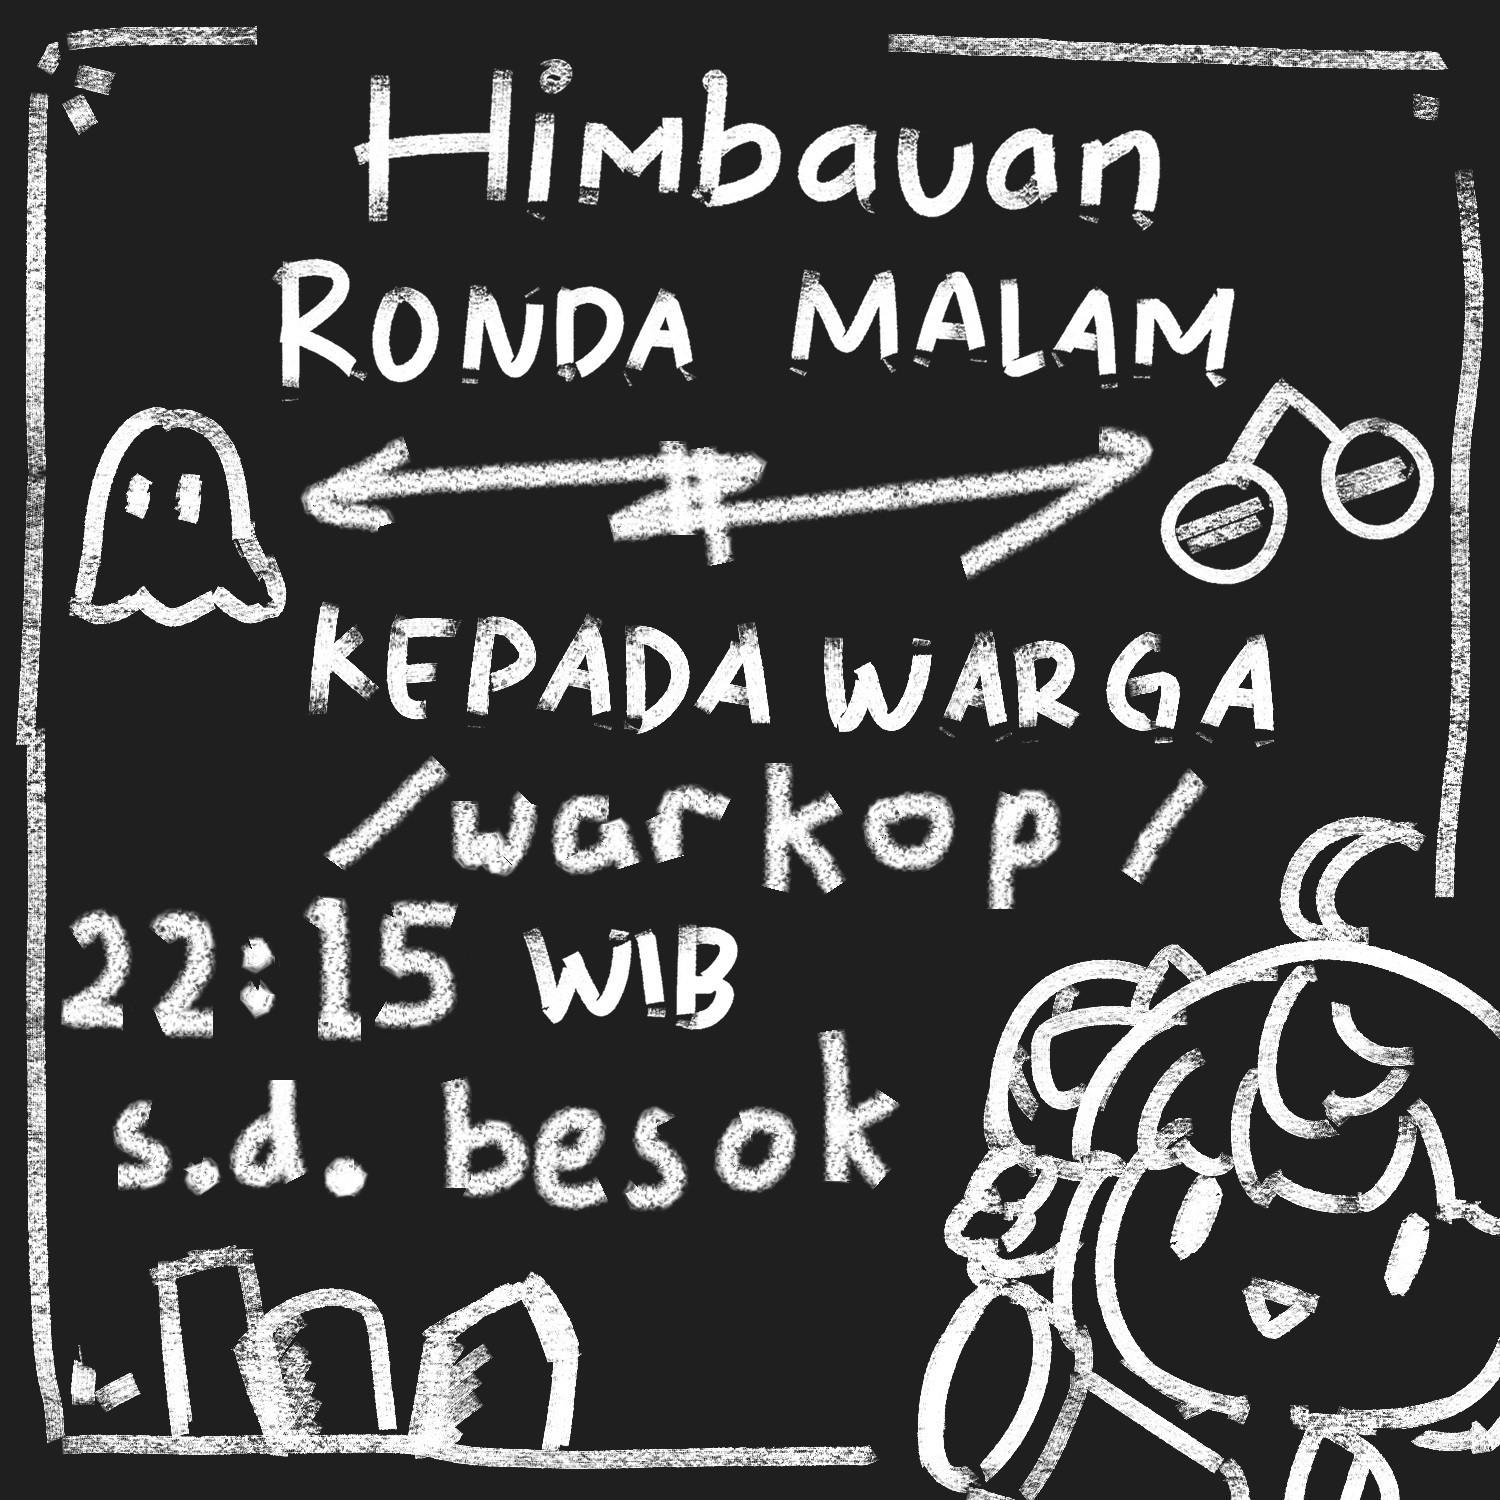 Himbauan
RONDA MALAM
KEPADA WARGA
/warkop/
22:15 WIB
s.d. besok